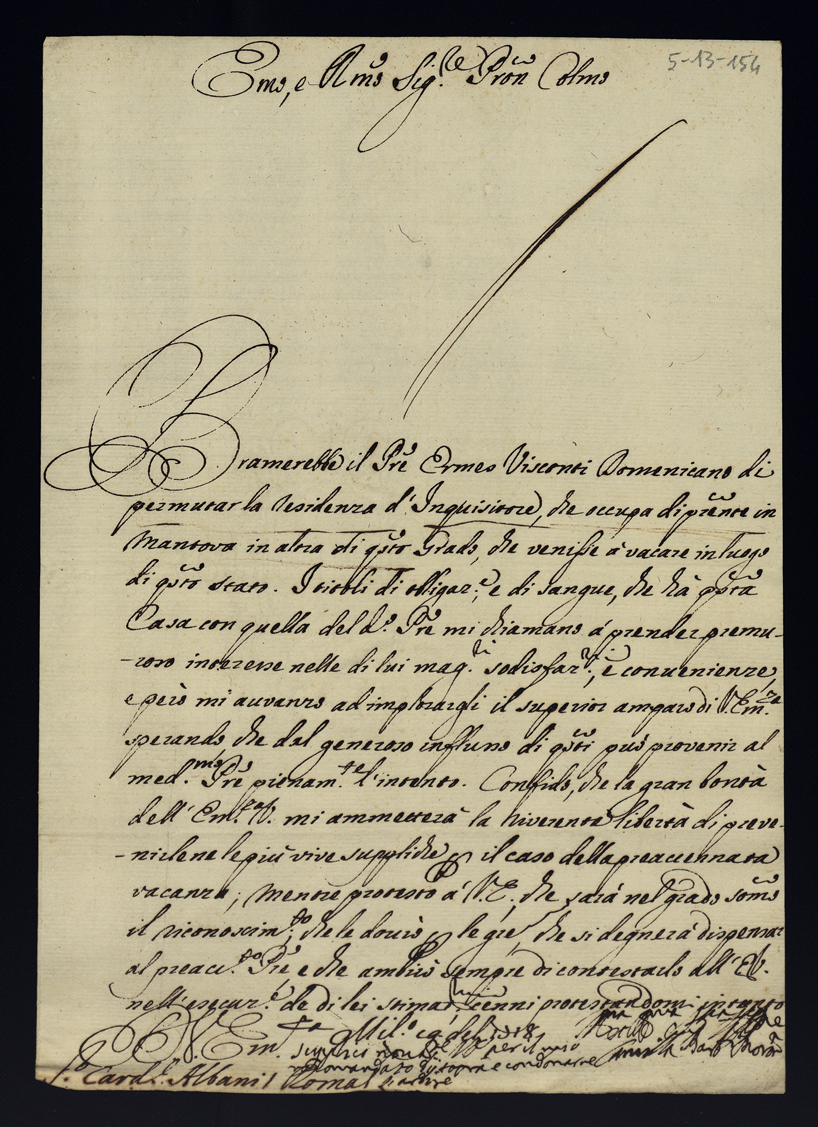 5-13-154
Emo, e Rmo Sig.re Pron Colmo
Bramerebbe il Pre Ermes Visconti Domenicano di
permutar la residenza d'Inquisitore, che occupa di pnte in
Mantova in altra di qsto Grado, che venisse à vacare in luogo
di qsto stato. I titoli di obligaz.e, e di sangue, che hà qsta
Casa con quella del d.o Pre mi chiamano à prender premu-
-roso interesse nelle di lui mag.ri sodisfaz.ni, e convenienze,
e però mi avvanzo ad implorargli il superior amparo di V. Em.za
sperando che dal generoso influsso di qsti può provenir al
med.mo Pre pienam.te l'intento. Confido, che la gran bontà
dell'Em.za V. mi ammetterà la riverente libertà di preve-
-nirlene le più vive suppliche p il caso della preaccennata
vacanza; mentre protesto à V.E., che sarà nel grado somo
il riconoscim.to, che le dovrò p le gre, che si degnerà dispensar
al preac.to Pre e che ambirò sempre di contestarlo all'E.V.
nell'esecuz.e de di lei stimat.mi cenni protestandomi intanto
V. Em.za Mil.o
S.r Card.l Albani / Roma